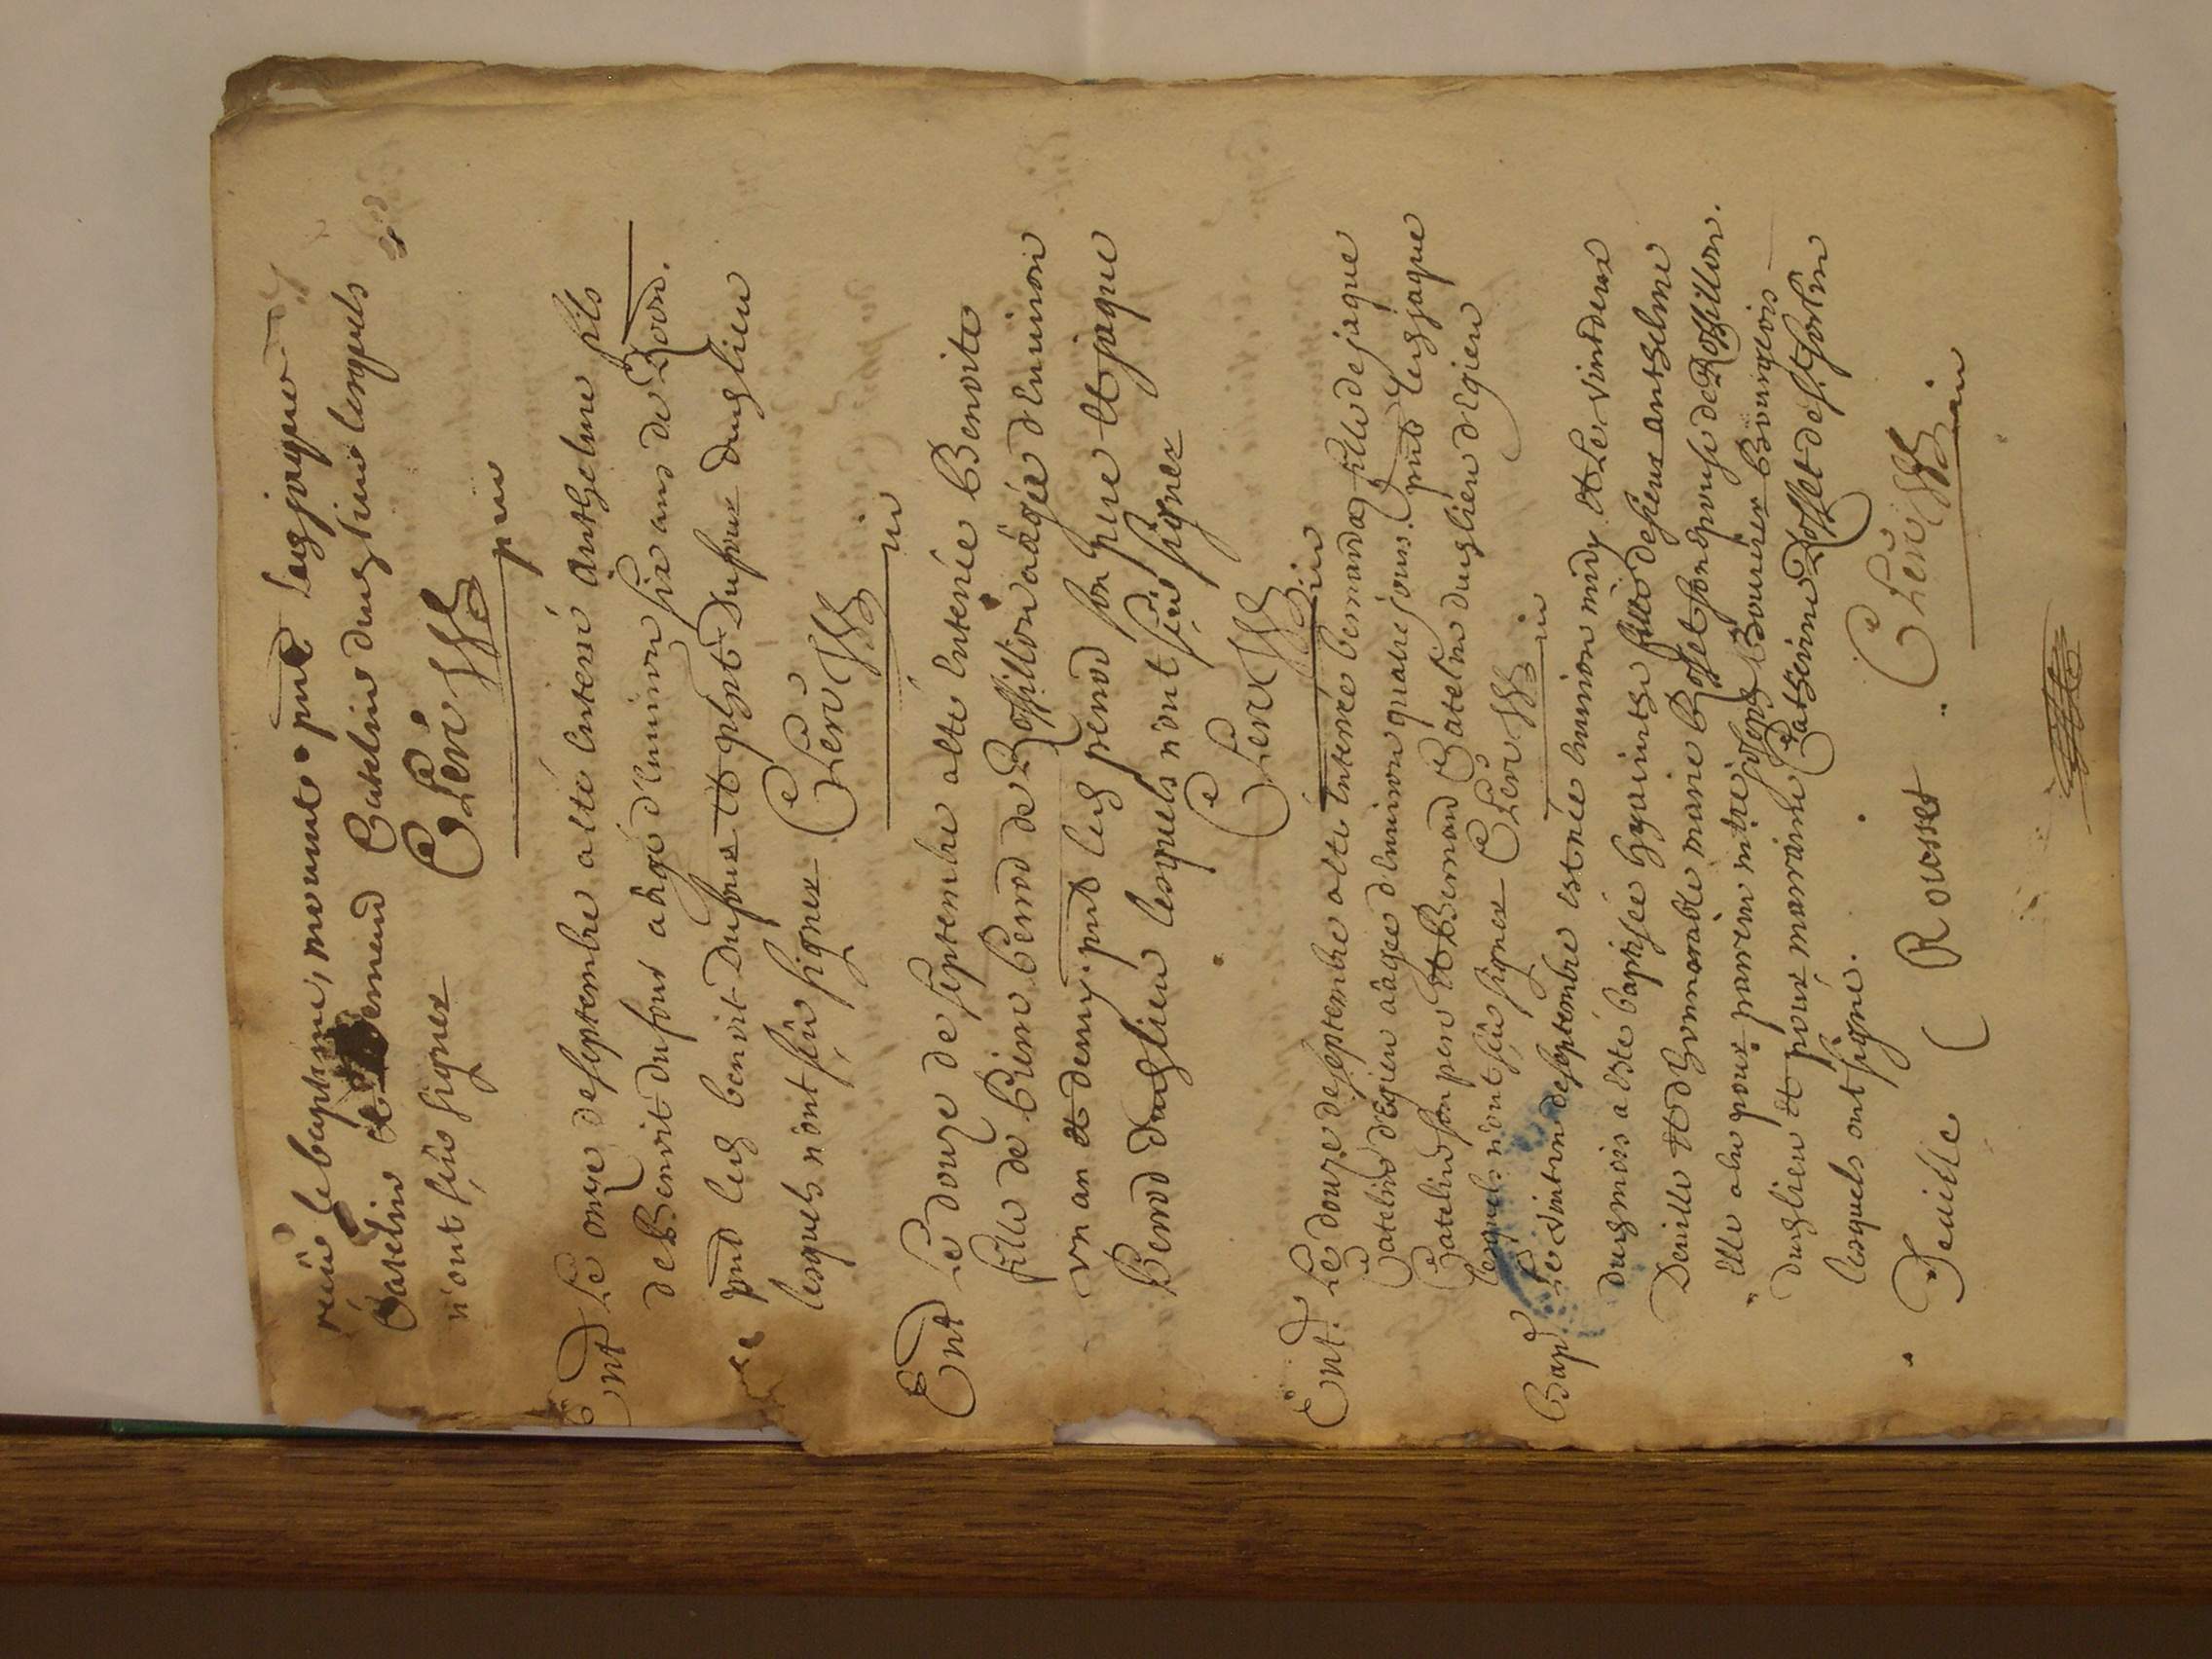 reçeu le baptesme, mourut. pnt led jaques
Catelin et Bernard Catelin dud lieu lesquels
n'ont sçeu signer Cleri
Ent Le onze de septembre a esté enterré Anthelme fils
de Benoit dufour aâgé d'environ six ans de
pnt led benoit Dufour et phbt Dufour dud lieu
lesquels n'ont sçeu signer Cleri
Ent Le douze de septembre a esté enterrée Benoite
fille de Pierre Perrod de Rossillion aâgée d'environ
vn an et demy. pnt led perrod son pere et jaque
Perrod dud lieu lesquels n'ont sçeu signer
Cleri
Ent. Le douze de septembre a esté enterrée bernarda fille de jaque
Catelin d'Egieu aâgée d'environ quatre jours. pnt led jaque
Catelin son pere et Bernard Catelin dud lieu d'Egieu
lesquels n'ont sçeu signer Cleri
Bap. Le vint vn de septembre est née environ midy et Le vint deux
dud mois a esté baptisée hyacinthe fille de sieur anthelme
Deville et d'honnorable marie Rosset son epouse de Rossillion.
Elle a eu pour parein mtre joseph Bouvier bourgeois
dud lieu et pour marraine Catherine Rosset de
lesquels ont signé.
Deville Rousset Cleri